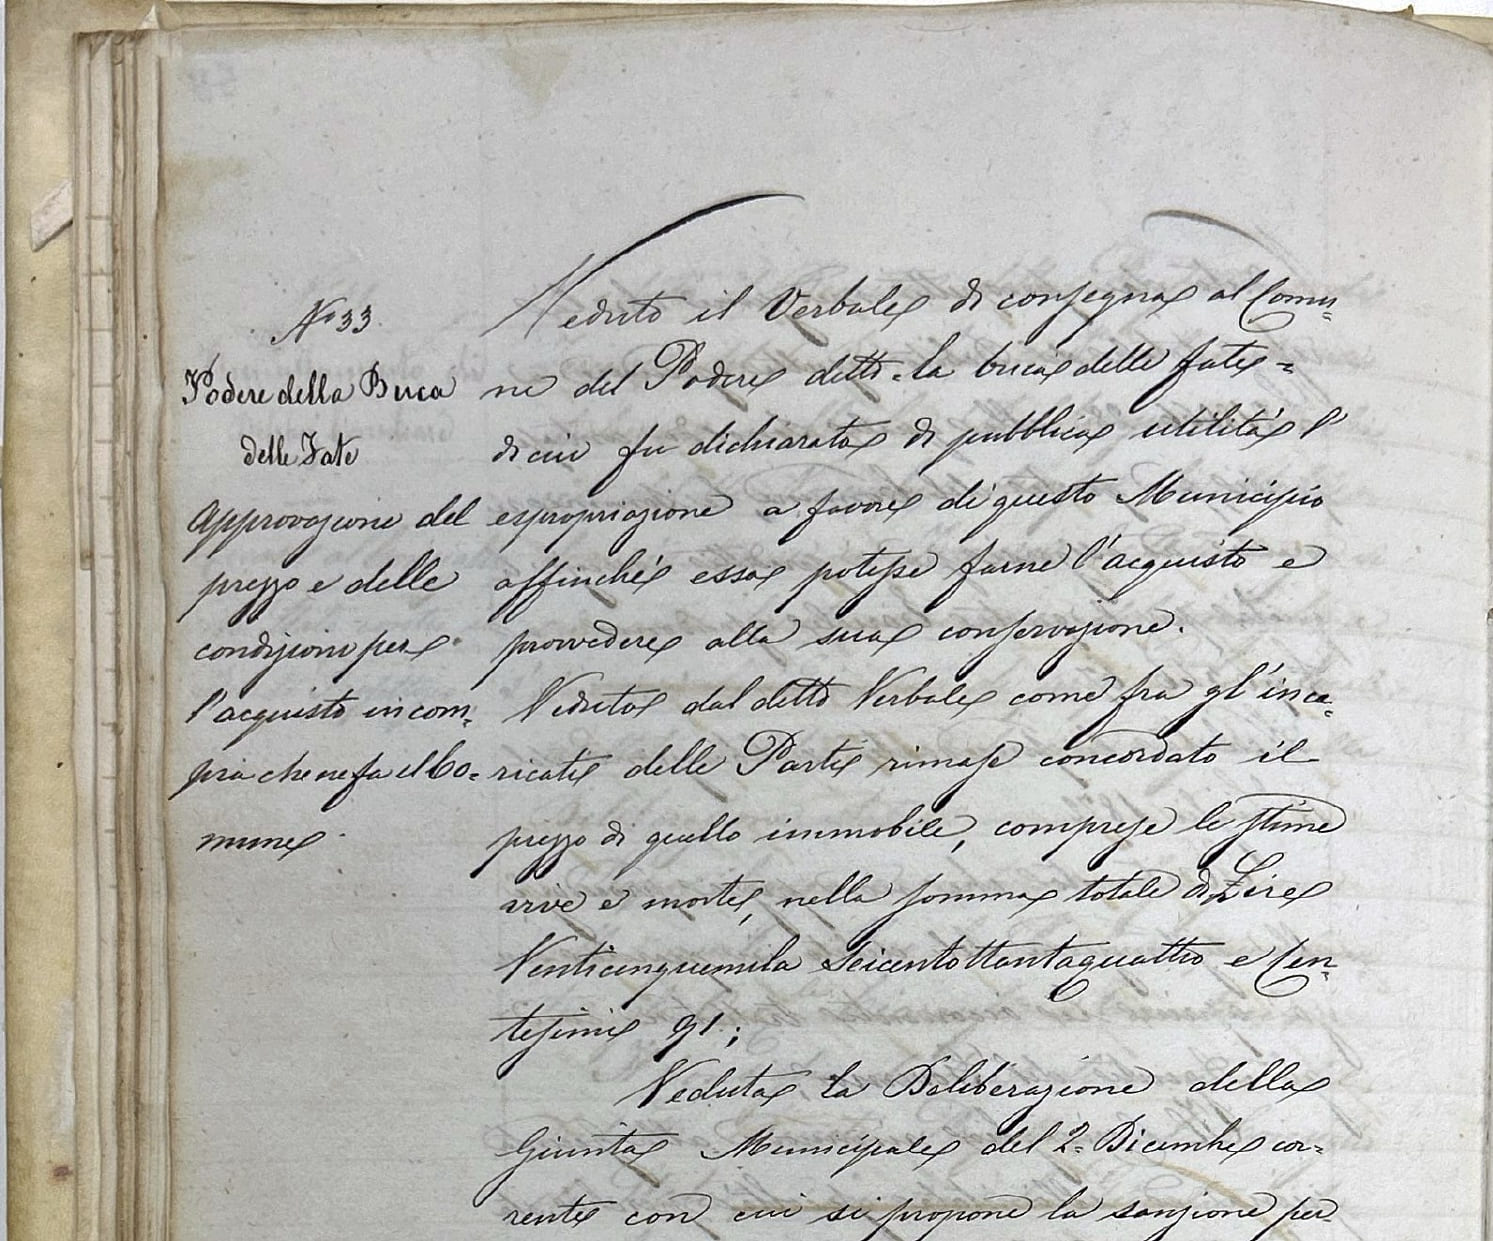 N° 33
Podere della Buca
delle Fate
Approvazione del
prezzo e delle
condizioni per
l'acquisto in com-
pra che ne fa il Co-
mune
Veduto il Verbale di consegna al Comu-
ne del Podere detto = la buca delle fate =
di cui fu dichiarata di pubblica utilità l'
espropriazione a favore di questo Municipio
affinché esso potesse farne l'acquisto e
provvedere alla sua conservazione.
Veduto dal detto Verbale come fra gl'inca-
ricati delle Parti rimase concordato il
prezzo di quello immobile, comprese le stime
vive e morte, nella somma totale di Lire
Venticinquemila Seicentottantaquattro e Cen-
tesimi 91;
Veduta la Deliberazione della
Giunta Municipale del 2. Dicembre cor-
rente con cui si propone la sanzione per